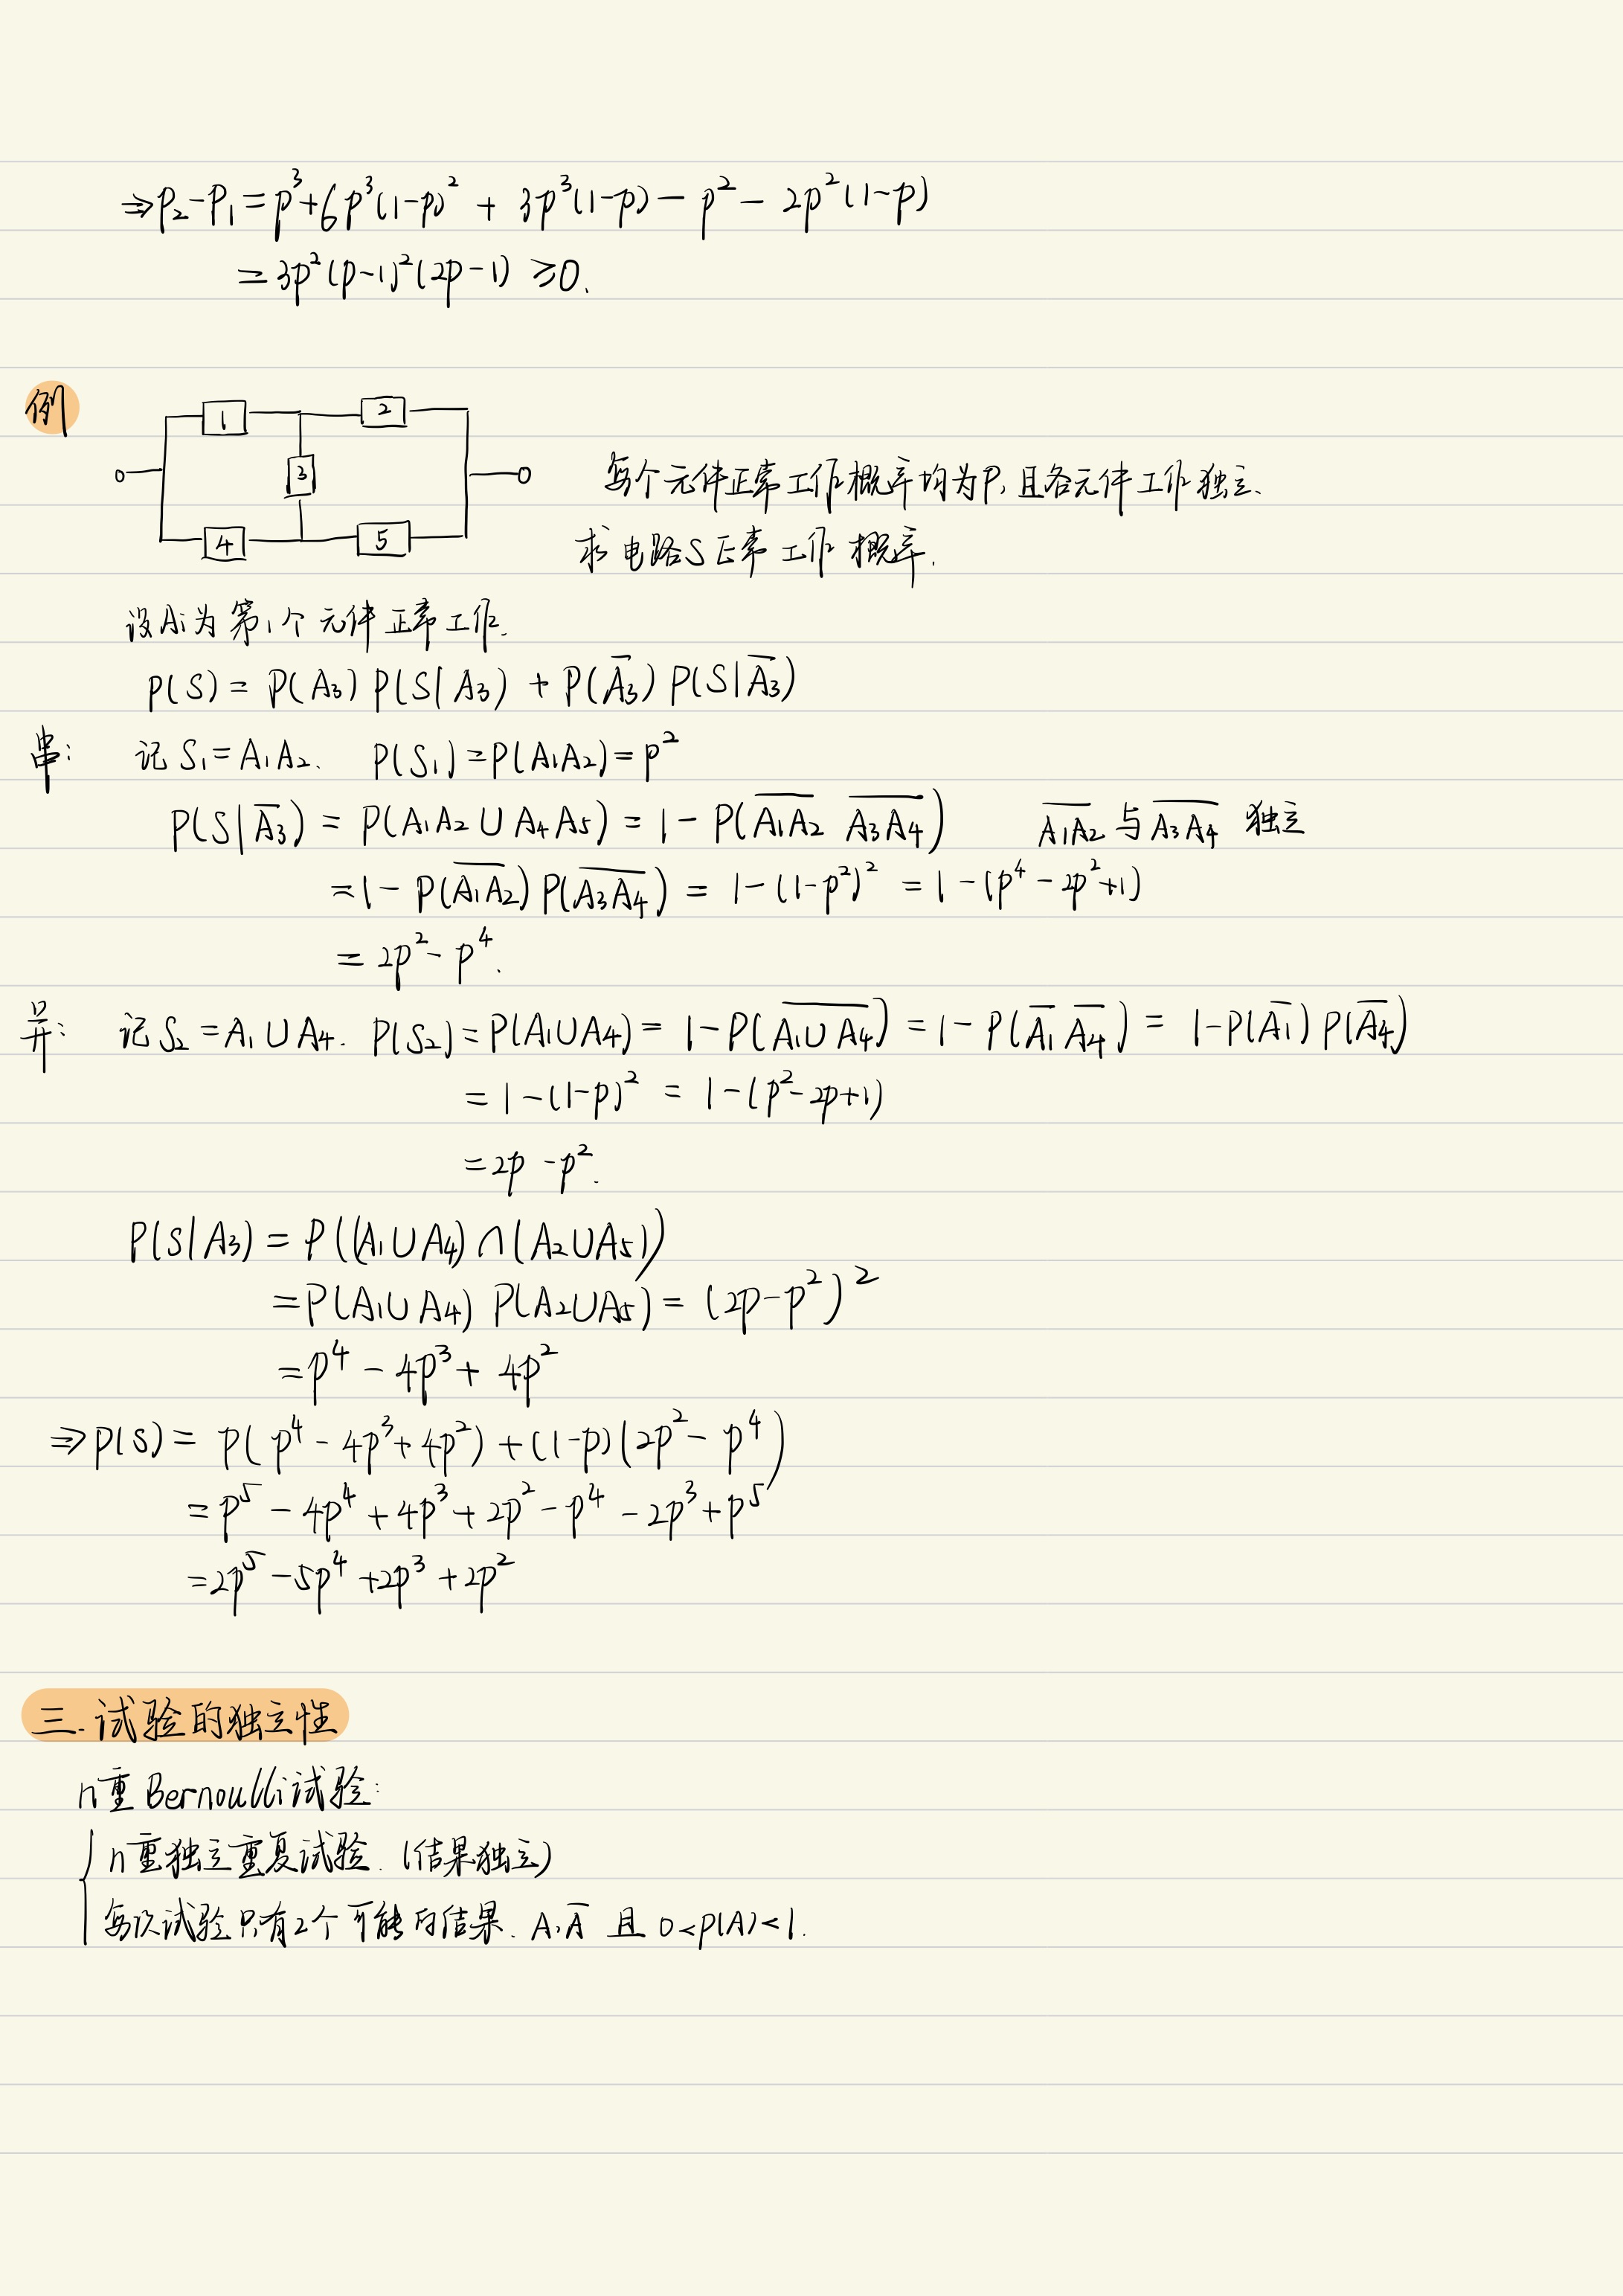 ⇒P₂-P₁=p³+6p³(1-p)² + 3p³(1-p)- p² - 2p²(1-p)
=3p²(p-1)²(2p-1) ≥0.
例
1 2
3
4 5
每个元件正常工作概率均为P,且各元件工作独立、
求电路S正常工作概率.
设Ai为第i个元件正常工作.
P(S)= P(A₃)P(S|A₃) + P(A̅₃)P(S|A̅₃)
串: 记S₁=A₁A₂、 P(S₁)=P(A₁A₂)=p²
P(S|A̅₃) = P(A₁A₂∪A₄A₅) = 1- P(\overline{A₁A₂} \overline{A₃A₄}) \overline{A₁A₂}与\overline{A₃A₄} 独立
=1- P(\overline{A₁A₂})P(\overline{A₃A₄}) = 1-(1-p²)² = 1-(p⁴-2p²+1)
= 2p²-p⁴.
并: 记S₂=A₁∪A₄. P(S₂)=P(A₁∪A₄)= 1-P(\overline{A₁∪A₄}) =1-P(A̅₁A̅₄) = 1-P(A̅₁)P(A̅₄)
= 1-(1-p)² = 1-(p²-2p+1)
=2p-p².
P(S|A₃)= P((A₁∪A₄)∩(A₂∪A₅))
=P(A₁∪A₄) P(A₂∪A₅)= (2p-p²)²
=p⁴-4p³+4p²
⇒P(S)= p(p⁴-4p³+4p²)+(1-p)(2p²-p⁴)
=p⁵-4p⁴+4p³+2p²-p⁴-2p³+p⁵
=2p⁵-5p⁴+2p³+2p²
三.试验的独立性
n重Bernoulli试验:
n重独立重复试验.(结果独立)
每次试验只有2个可能的结果.A,A̅ 且 0<P(A)<1.